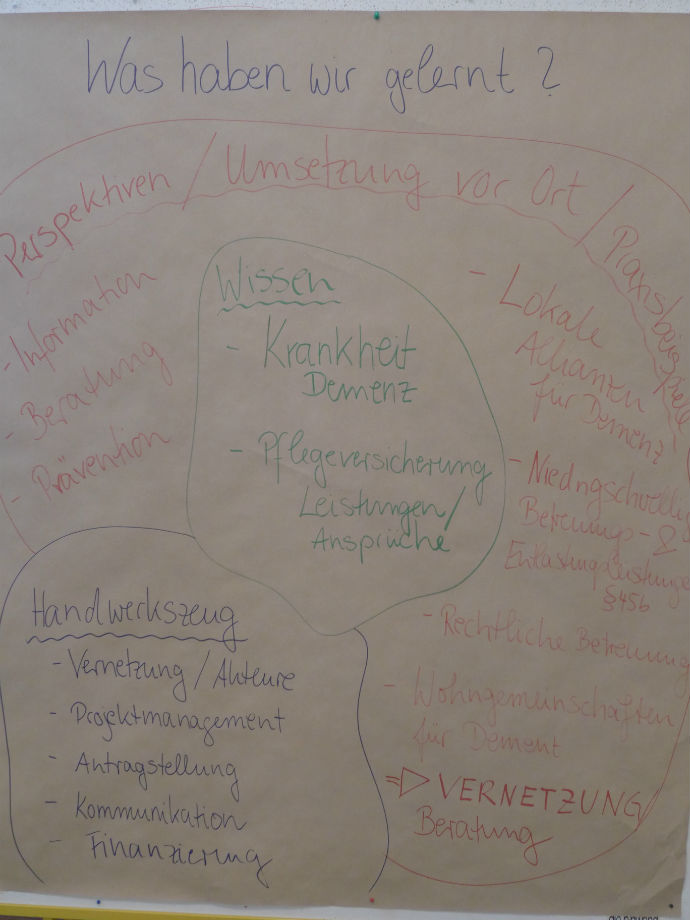 Was haben wir gelernt?
Perspektiven / Umsetzung vor Ort / Praxisbeispiele
- Information
- Beratung
- Prävention
Wissen
- Krankheit
Demenz
- Pflegeversicherung
Leistungen/
Ansprüche
- Lokale
Allianzen
für Demenz
- Niedrigschwellig
Betreuungs- &
Entlastungsleistunge
§45b
- Rechtliche Betreuung
- Wohngemeinschaften
für Dement
⇒ VERNETZUNG
Beratung
Handwerkszeug
- Vernetzung / Akteure
- Projektmanagement
- Antragstellung
- Kommunikation
- Finanzierung